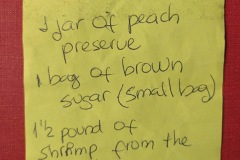 1 jar of peach
preserve
1 bag of brown
sugar (small bag)
1 1/2 pound of
shrimp from the